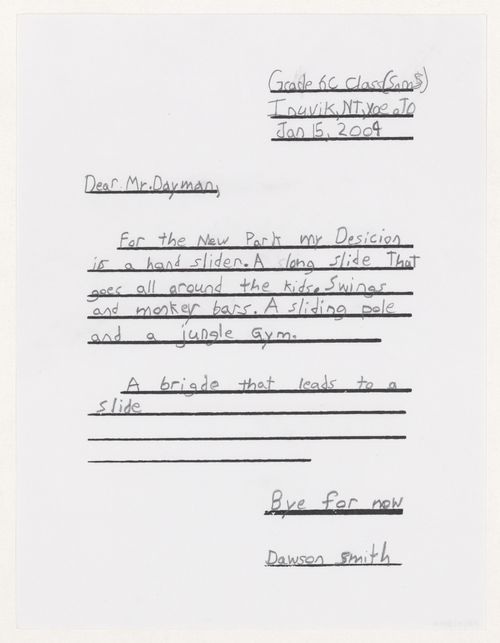 Grade 6C Class(Sams)
Inuvik, NT, X0E 0T0
Jan 15, 2004
Dear Mr. Dayman,
For the New Park my Desicion
is a hand slider. A long slide That
goes all around the kids. Swings
and monker bars. A sliding pole
and a jungle Gym.
A brigde that leads to a
slide
Bye for now
Dawson smith